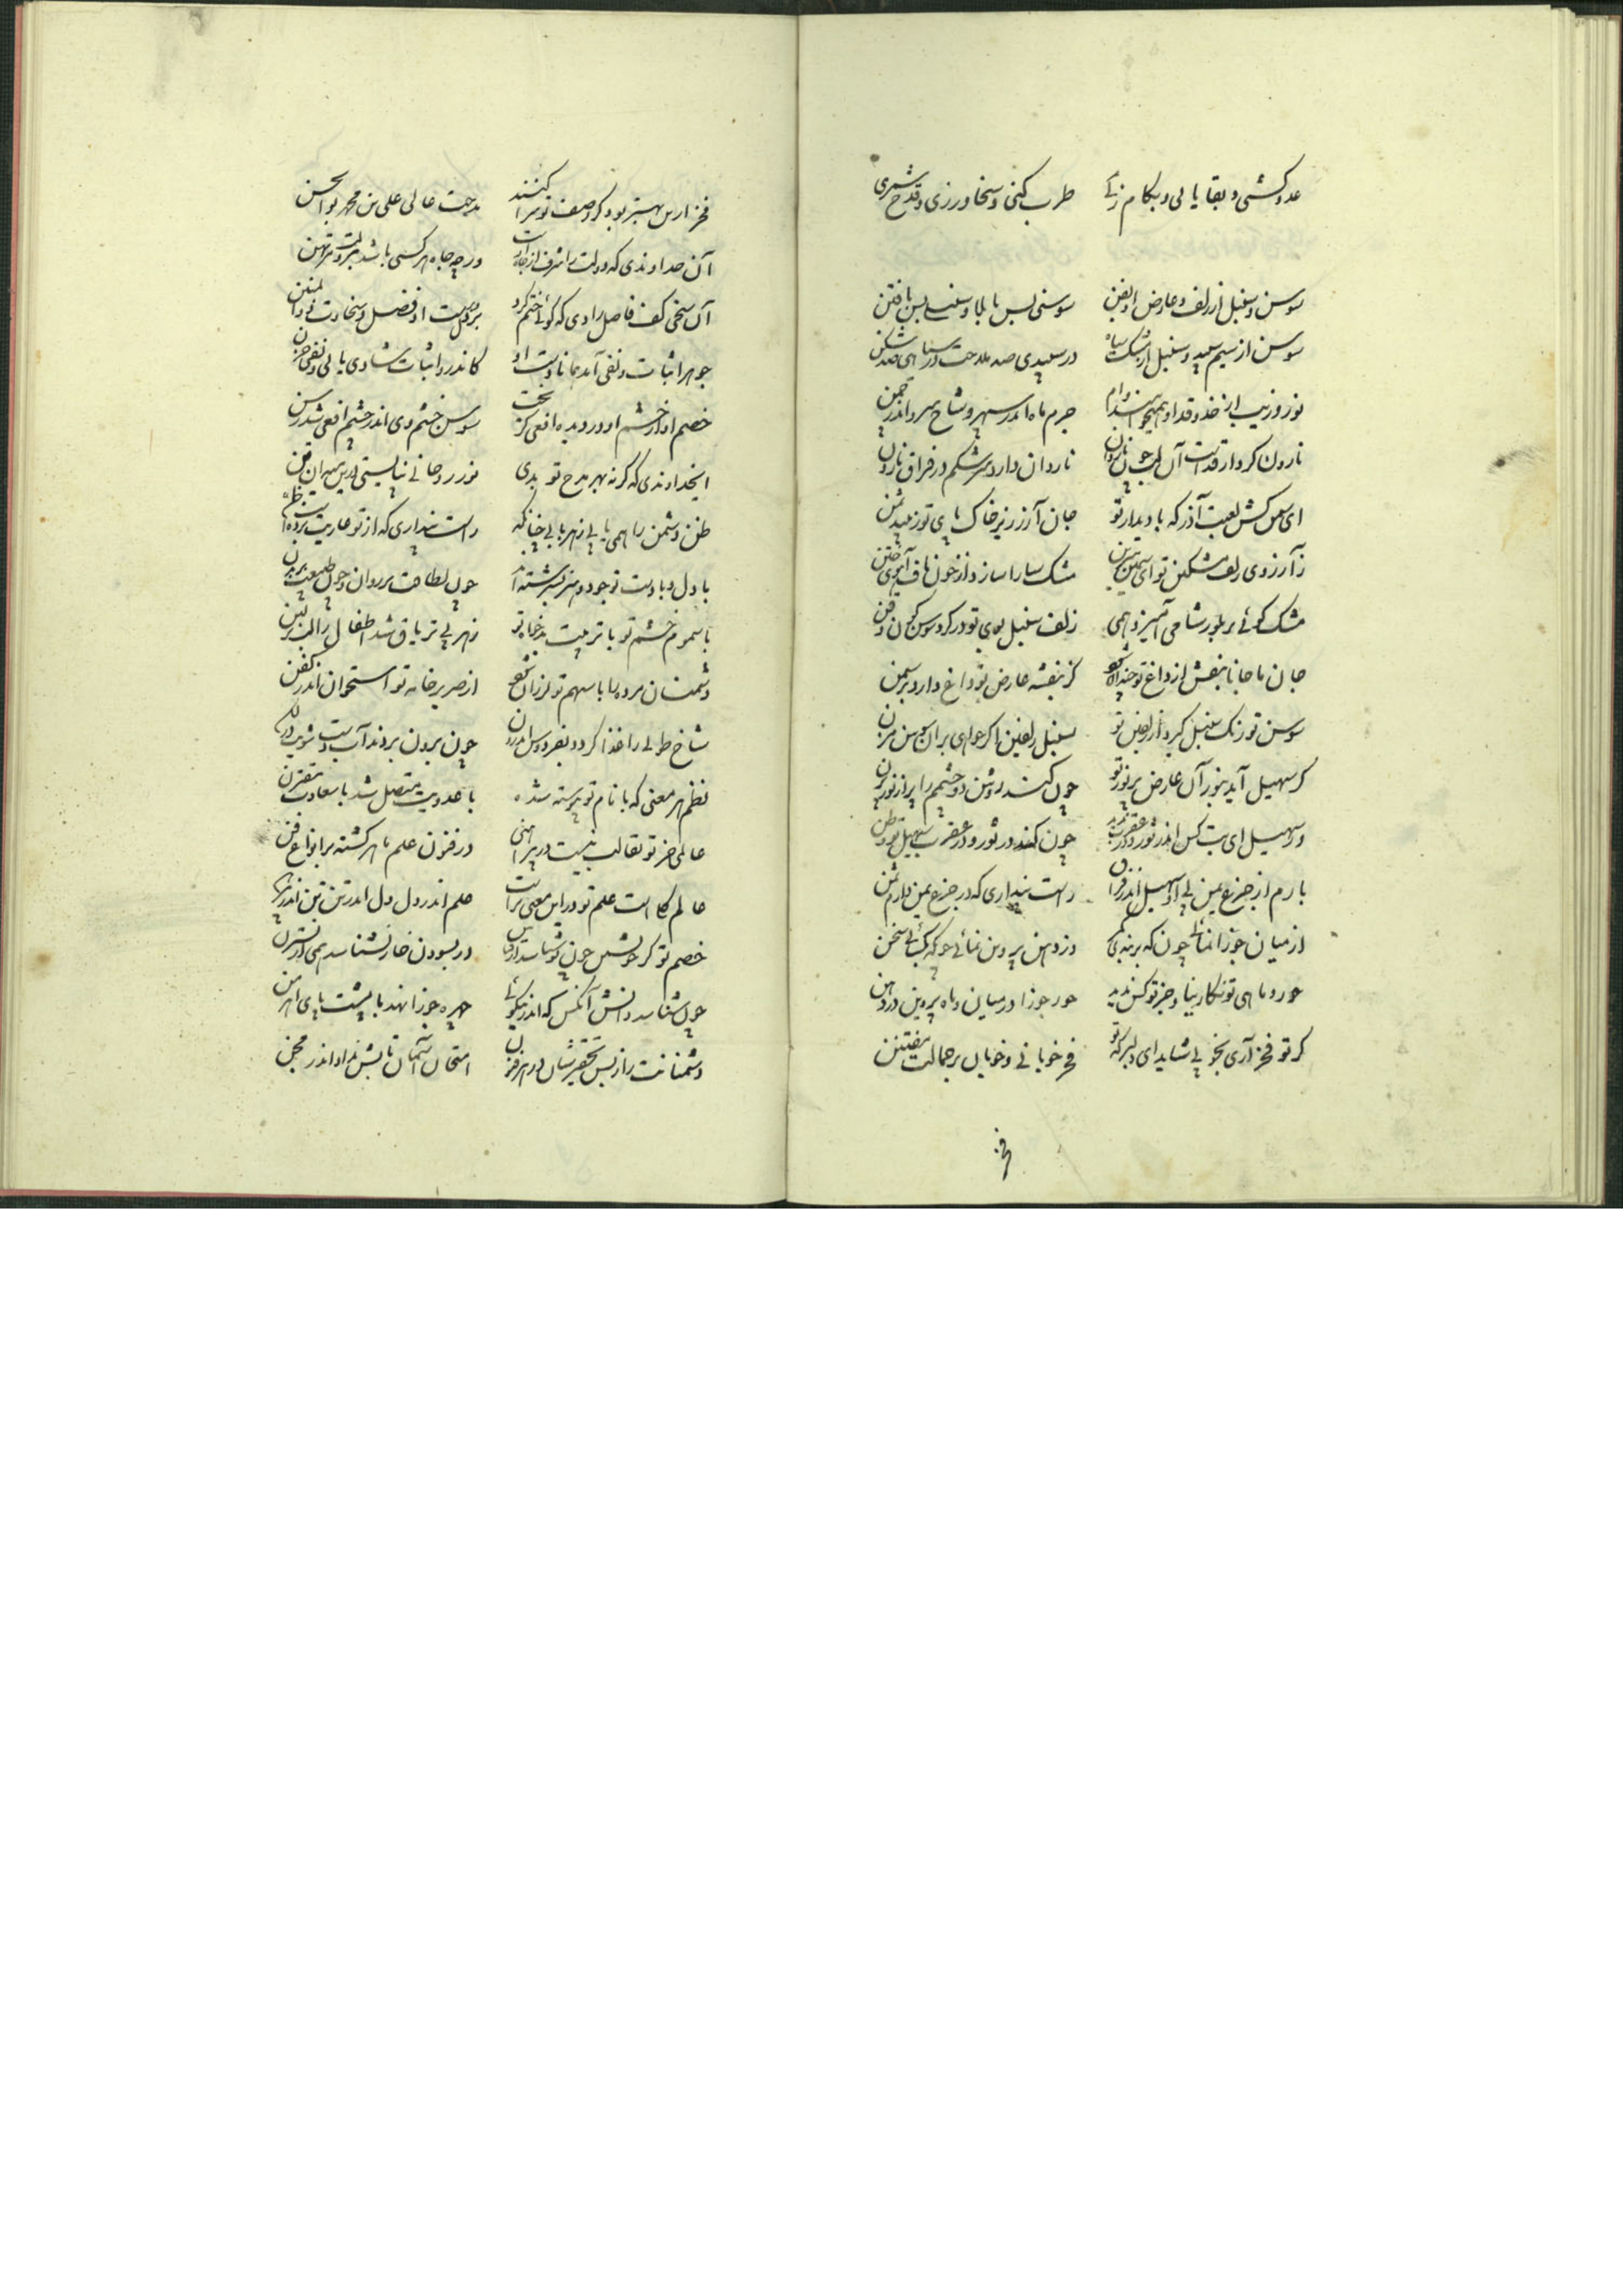 عدو کشی و بقا یابی و بکام زئی طرب کنی و سخا ورزی و قدح شمری
سوسن و سنبل از زلف و عارض سوسنی بس با بلا و سنبلی بس با فتن
سوسن از سیم سپید و سنبل از مشک سیاه در سپیدی صد ملاحت در سیاهی صد شکن
نور و زیب از خد و قد او همیخواهند وام جرم ماه اندر سپهر و شاخ سرو اندر چمن
نارون کردار قدست آن لب چون ناردان ناردان دارد سرشکم در فراق نارون
ای کش لعبت آذر که با دیدار تو جان آزر زیر خاک پای تو زیبد ثمن
زآرزوی زلف مشکین تو ای سیمین بدن مشک سارا سازد از خون ناف آهوی ختن
مشک گوئی بر بلور شامی آمیزد همی زلف سنبل بوی تو در گرد سوسن گون ذقن
جان ما جانا بنفش از داغ تو کز بنفشه عارض تو داغ دارد بر سمن
سوسن تو رنگ سنبل گیرد از زلفین تو سنبل زلفین را گر خواهی بر آن سوسن مزن
گر سهیل آید بنور آن عارض پر نور تو چون کند روشن دو چشمم را پر از نور پرن
ور سهیل ای بت کس اندر ثور و در عقرب ندید چون کند در ثور و در عقرب سهیل تو وطن
بارم از جزع یمن بی او سهیل اندر فراق راست پنداری که در جزع یمن دارم ثمن
از میان جوزا نمائی چون که بر بندی کمر وز دهن پروین نمائی چو که بگشائی سخن
حور و ماهی تو نگارینا و جز تو کس ندید حور جوزا در میان و ماه پروین در دهن
گر تو فخر آری بخوبی شاید ای دلبر که تو فخر خوبانی و خوبان بر جمالت مفتتن
فخر
فخر از این بهتر بود کز وصف تو مرا کنند مدحت عالی علی بن محمد بوالحسن
آن خداوندی که دولت را شرف از جاه اوست ورچه جاه هر کسی باشد بدولت مرتهن
آن سخی کف فاضل رادی که گوئی ختم کرد بر دل و دست او فضل و سخاوت ذوالمنن
جوهر اثبات و نفی آمد همانا دست او کاندر و اثبات شادی یابی و نفی حزن
خصم او از خشم او در دیده افعی گریخت سوسن خشم وی اندر چشم افعی شد رسن
ایخداوندی که گر نه بهر مدح تو بدی نور روحانی نبایستی درین میران فتن
ظن دشمن را همی یابی ز هر بابی چنانکه راست پنداری که از تو عاریت بردست ظن
با دل و با دست تو جود و هنر بسرشته‌اند چون لطافت بر روان و چون طبیعت بر بدن
با سموم خشم تو با تربیت بدخواه تو زهر بی تریاق شد اطفال را لب بر لبن
دشمنان مرده را با سهم تو لرزان شود از صریر خامه تو استخوان اندر کفن
شاخ طوبی را غذا گردد بفردوس اندرون چون برون بردند آب دست شوی در لگن
نظم هر معنی که با نام تو پیوسته شده با عذوبت متصل شد با سعادت مقترن
عالمی جز تو بقالب نیست در پیراهنی در فنون علم ماهر گشته بر انواع فن
عالم کل است علم تو و در این معنی تراست علم اندر دل و دل اندر تن و تن اندر پیرهن
خصم تو گر خویشتن چون تو شناسد از قیاس در بسودن خار نشناسد همی از نسترن
چون شناسد دانش آنکس که اندر نیکوئی چهره حورا نهد با پشت پای اهرمن
دشمنانت را ز بس تحقیر شان در هر قرن امتحان آسمان تا بش نهاد اندر محن